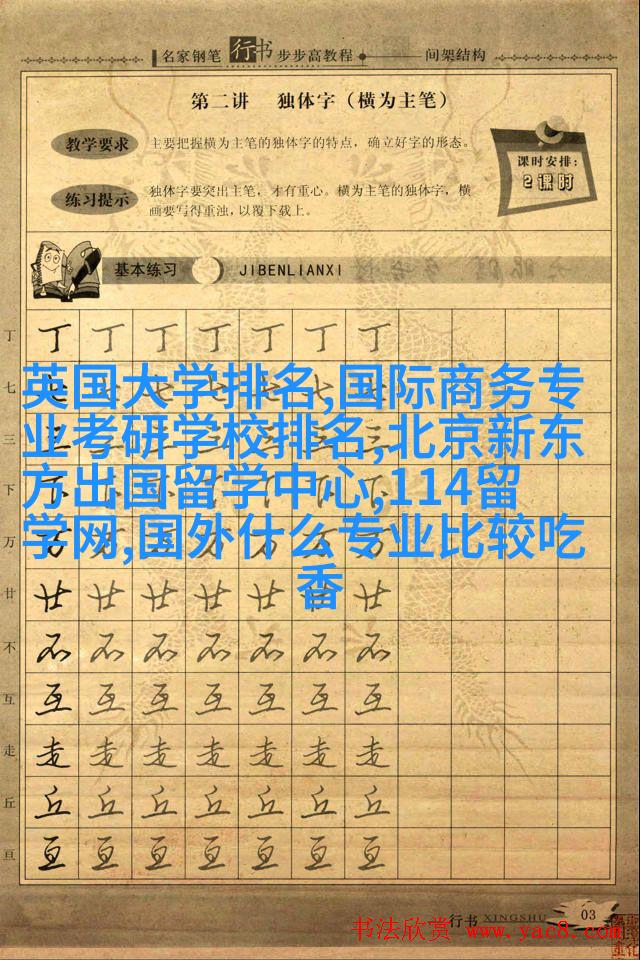 名家钢笔 行书 步步高教程 间架结构
第二讲 独体字（横为主笔）
教学要求 主要把握横为主笔的独体字的特点，确立好字的形态。
课时安排：
2课时
练习提示 独体字要突出主笔，才有重心。横为主笔的独体字，横
画要写得重浊，以覆下载上。
基本练习 JIBENLIANXI
丁 丁 丁 丁 丁 丁 丁 丁
英国大学排名,国际商务专
业考研学校排名,北京新东
方出国留学中心,114留
学网,国外什么专业比较吃
香
七 七 七 七 七 七 七 七
三 三 三 三 三 三 三 三
下 下 下 下 下 下 下 下
万 万 万 万 万 万 万 万
廿 廿 廿 廿 廿 廿 廿 廿
不 不 不 不 不 不 不 不
互 互 互 互 互 互 互 互
走 走 走 走 走 走 走 走
丘 丘 丘 丘 丘 丘 丘 丘
亘 亘 亘 亘 亘 亘 亘 亘
行书 XINGSHU 03
书法欣赏 www.yac8.com